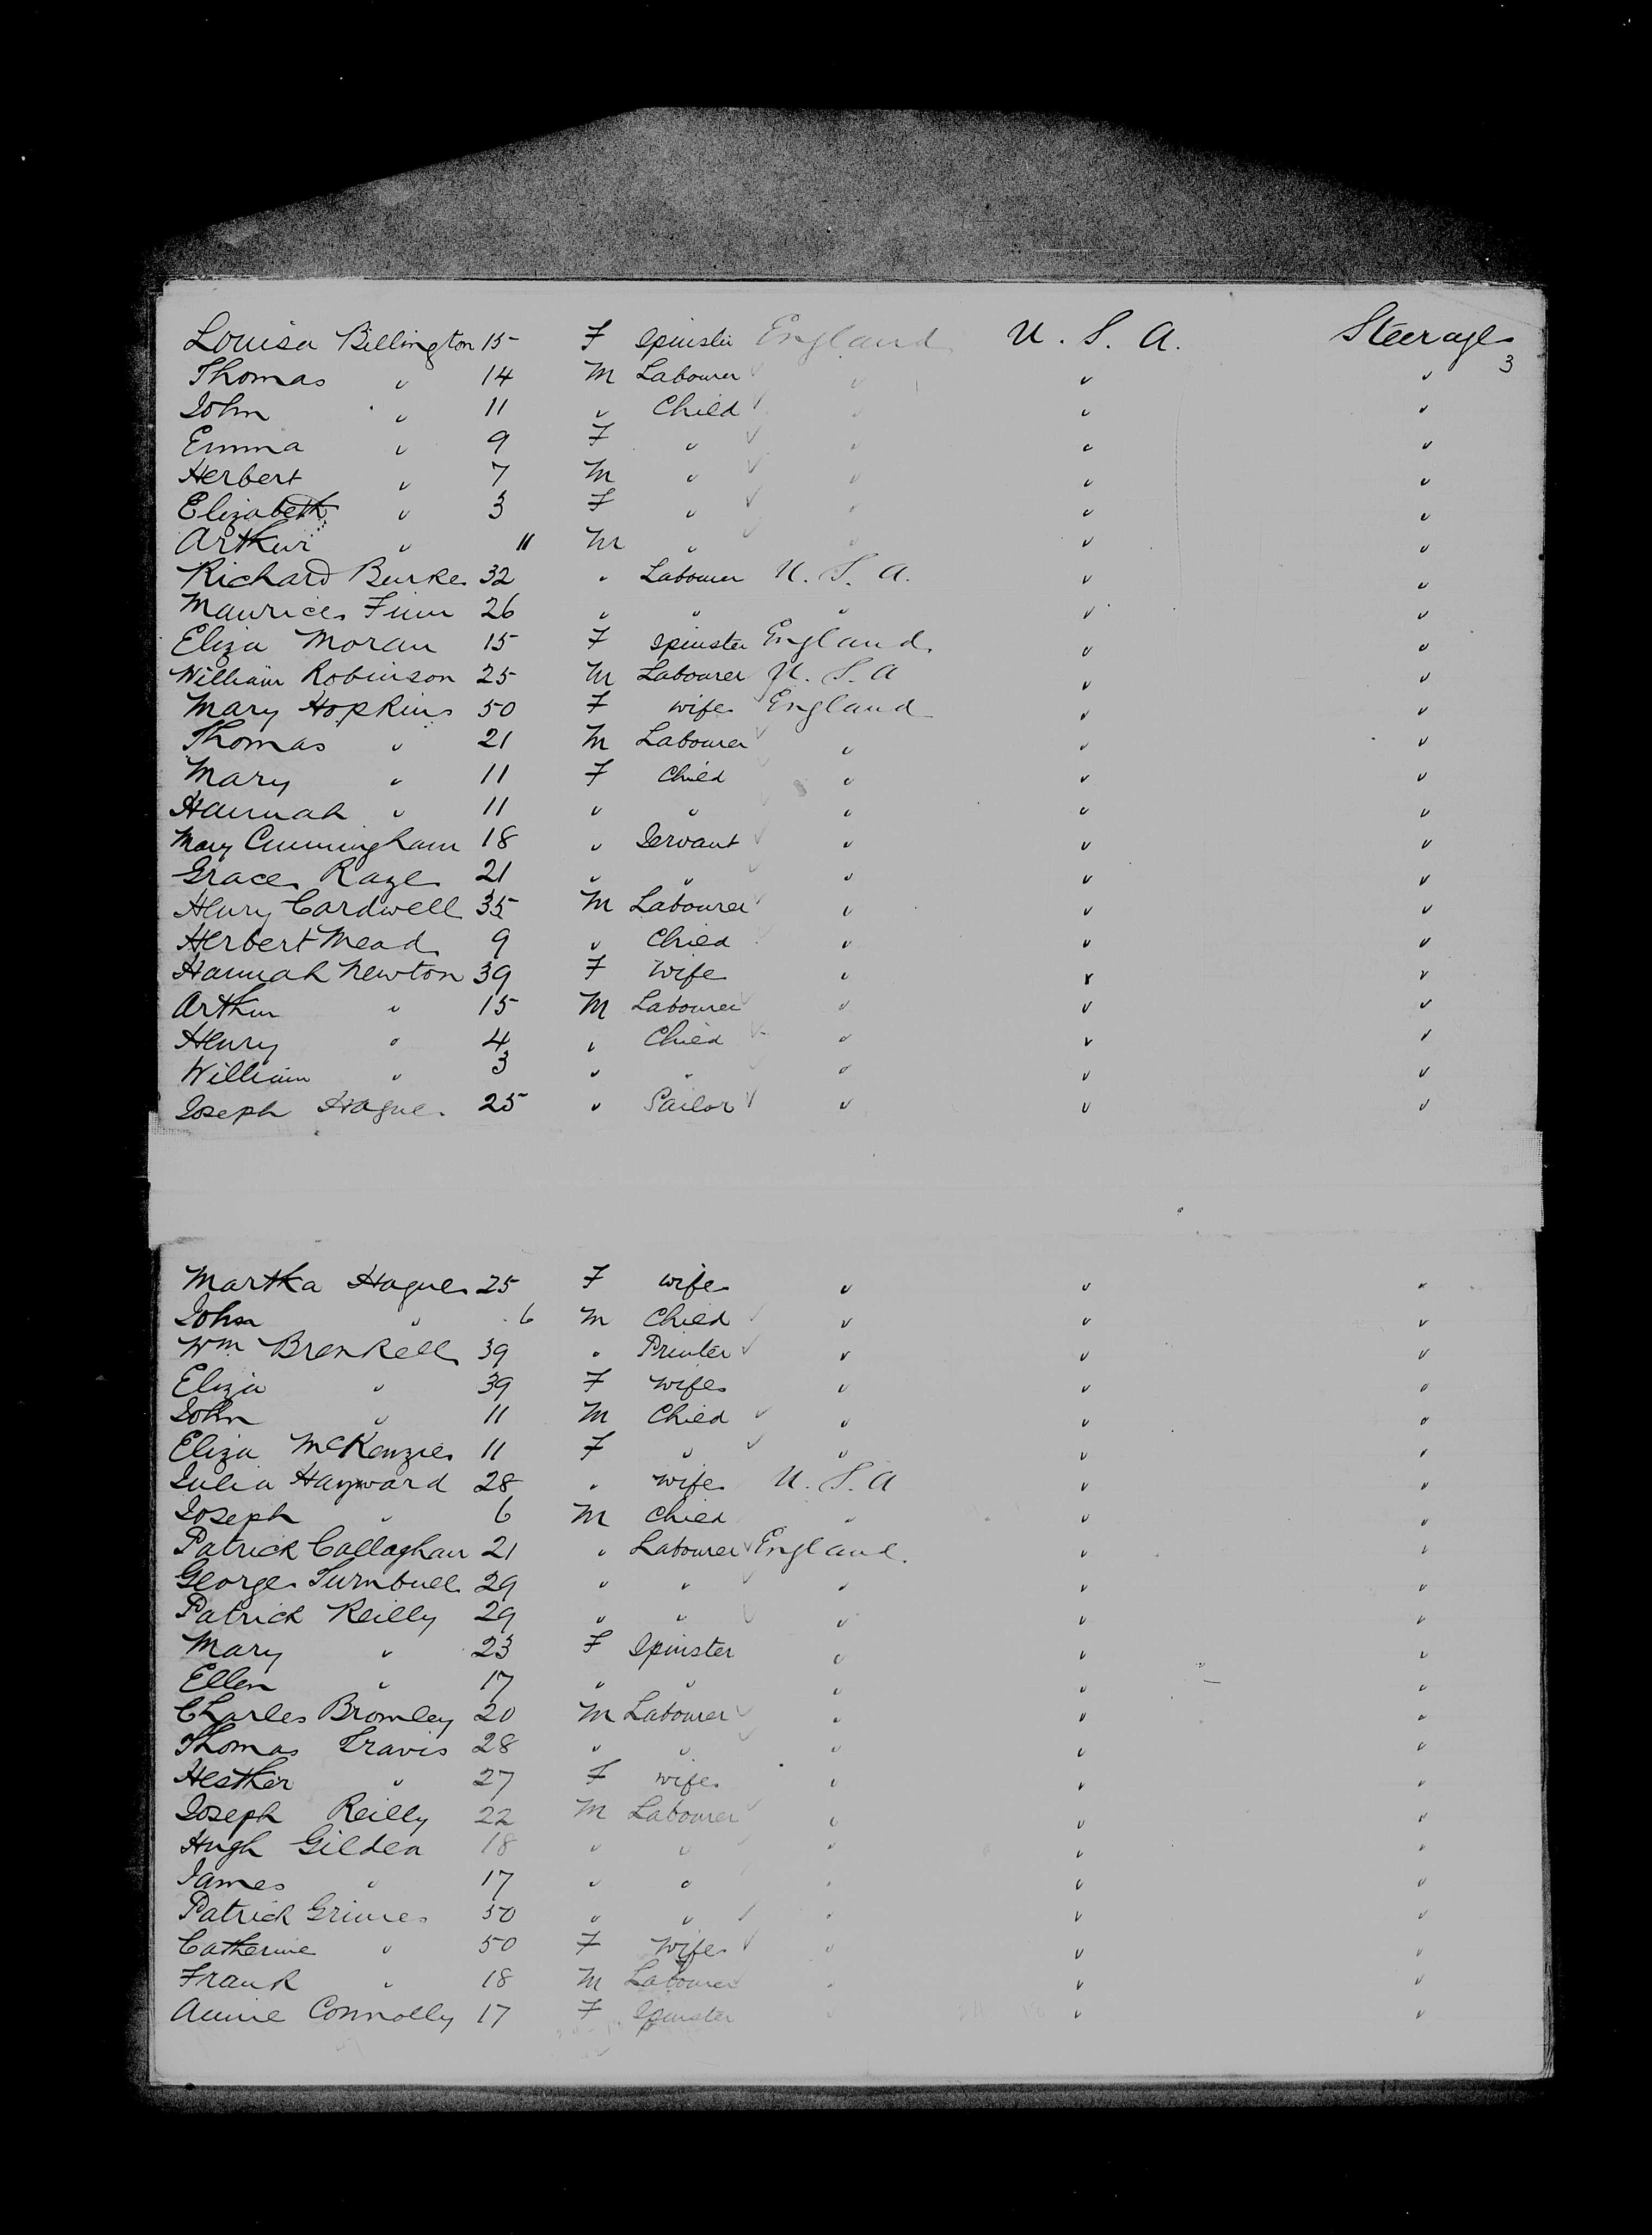 Louisa Billington 15 F Spinster England U. S. A. Steerage
3
Thomas " 14 M Labourer " " "
John " 11 " Child " " "
Emma " 9 F " " " "
Herbert " 7 M " " " "
Elizabeth " 3 F " " " "
Arthur " 11 M " " " "
Richard Burke 32 " Labourer U. S. A. " "
Maurice Finn 26 " " " " "
Eliza Moran 15 F Spinster England " "
William Robinson 25 M Labourer U. S. A " "
Mary Hopkins 50 F wife England " "
Thomas " 21 M Labourer " " "
Mary " 11 F Child " " "
Hannah " 11 " " " " "
Mary Cunningham 18 " Servant " " "
Grace Raze 21 " " " " "
Henry Cardwell 35 M Labourer " " "
Herbert Mead 9 " Child " " "
Hannah Newton 39 F Wife " " "
Arthur " 15 M Labourer " " "
Henry " 4 " Child " " "
William " 3 " " " " "
Joseph Hague 25 " Sailor " " "
Martha Hague 25 F wife " " "
John " 6 M Child " " "
Wm Brenkell 39 " Printer " " "
Eliza " 39 F Wife " " "
John " 11 M Child " " "
Eliza McKenzie 11 F " " " "
Julia Hayward 28 " Wife U. S. A " "
Joseph " 6 M Child " " "
Patrick Callaghan 21 " Labourer England. " "
George Turnbull 29 " " " " "
Patrick Reilly 29 " " " " "
Mary " 23 F Spinster " " "
Ellen " 17 " " " " "
Charles Bromley 20 M Labourer " " "
Thomas Travis 28 " " " " "
Hesther " 27 F wife " " "
Joseph Reilly 22 M Labourer " " "
Hugh Gildea 18 " " " " "
James " 17 " " " " "
Patrick Grimes 50 " " " " "
Catherine " 50 F Wife " " "
Frank " 18 M Labourer " " "
Annie Connolly 17 F Spinster " " "